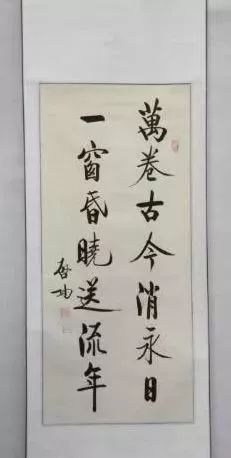 萬卷古今消永日
一窗昏曉送流年
啓功